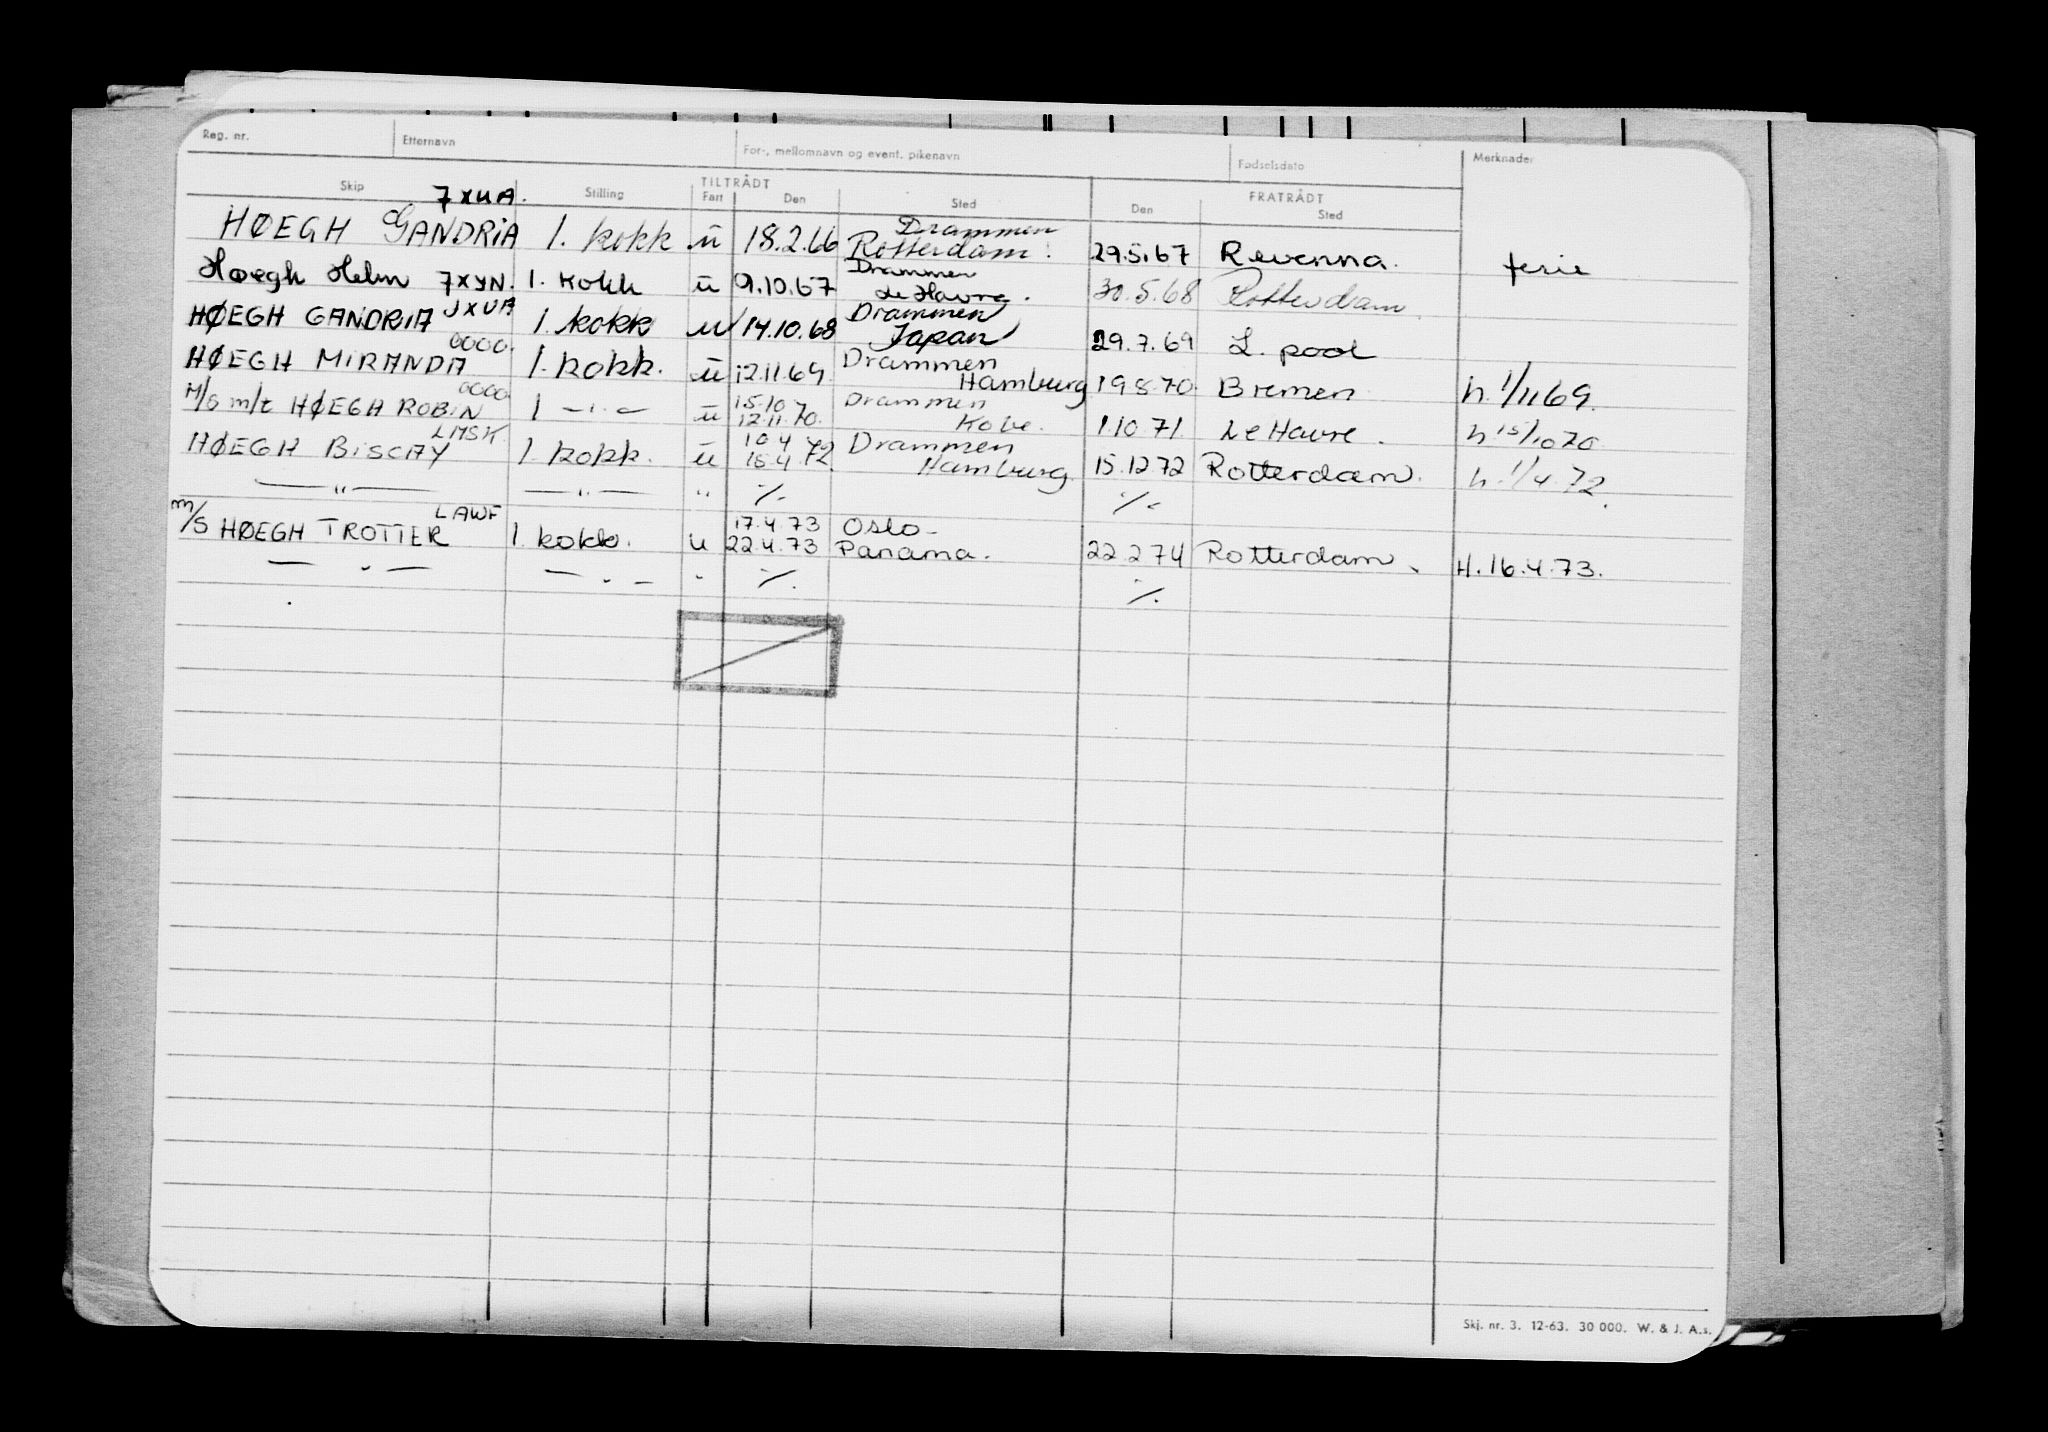 Reg. nr. Etternavn For-, mellomnavn og event. pikenavn Fødselsdato Merknader
TILTRÅDT FRATRÅDT
Skip Stilling Fart Den Sted Den Sted
7XUA.
HØEGH GANDRIA 1. kokk ū 18.2.66 Drammen Rotterdam. 29.5.67 Revenna. ferie
Høegh Helm 7XYN. 1. kokk ū 9.10.67 Drammen Le Havre. 30.5.68 Rotterdam.
HØEGH GANDRIA JXUA 1. kokk u 14.10.68 Drammen Japan 29.7.69 L. pool
0000.
HØEGH MIRANDA 1. kokk. ū 12.11.69. Drammen Hamburg 19.8.70. Bremen h. 1/11 69.
0000
M/S m/t HØEGH ROBIN 1 — " — ū 15.10 12.11.70. Drammen Kobe. 1.10.71. Le Havre. h 15/10 70
LMSK.
HØEGH BISCAY 1. kokk. ū 10.4 15.4.72 Drammen Hamburg. 15.12.72 Rotterdam. h. 1/4.72.
— " — — " — " ٪ ٪
LAWF
m/s HØEGH TROTTER 1. kokk. u 17.4.73 22.4.73 Oslo - Panama. 22.2.74 Rotterdam. H. 16.4.73.
— " — — " — " ٪ ٪
Skj. nr. 3. 12-63. 30 000. W. & J. A.s.